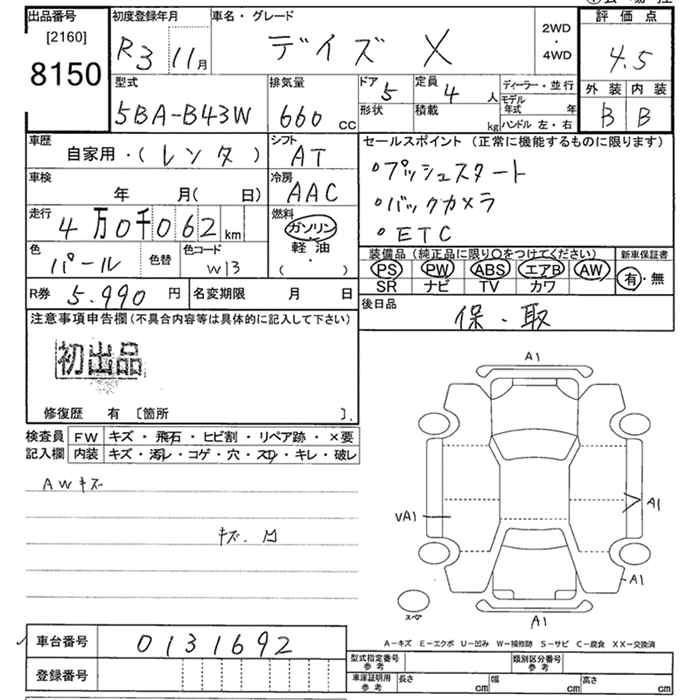 出品番号 初度登録年月 車名・グレード 評価点
[2160] R3 11月 デイズ X 2WD・4WD 4.5
8150
型式 排気量 ドア 5 定員 4人 ディーラー・並行 外装 内装
5BA-B43W 660 cc 形状 積載 kg モデル年式 年 ハンドル 左・右 B B
車歴 シフト セールスポイント (正常に機能するものに限ります)
自家用・(レンタ) AT
・プッシュスタート
車検 冷房
年 月(日) AAC
・バックカメラ
走行 燃料
4万0千062km ガソリン
・ETC
軽油
・( )
色 色替 色コード
パール W13
装備品 (純正品に限り○をつけてください) 新車保証書
PS PW ABS エアB AW 有・無
SR ナビ TV カワ
R券 5.990円 名変期限 月 日
後日品 保・取
注意事項申告欄 (不具合内容等は具体的に記入して下さい)
初出品
修復歴 有 〔箇所 〕.
検査員 FW キズ・飛石・ヒビ割・リペア跡・×要
記入欄 内装 キズ・汚レ・コゲ・穴・スレ・キレ・破レ
AWキズ
キズ.凹
A1
VA1
A1
A1
スペア
A1
A-キズ E-エクボ U-凹み W-補修跡 S-サビ C-腐食 XX-交換済
車台番号 0131692
登録番号
型式指定番号 参考 類別区分番号 参考
車庫証明用 参考 長さ cm 幅 cm 高さ cm